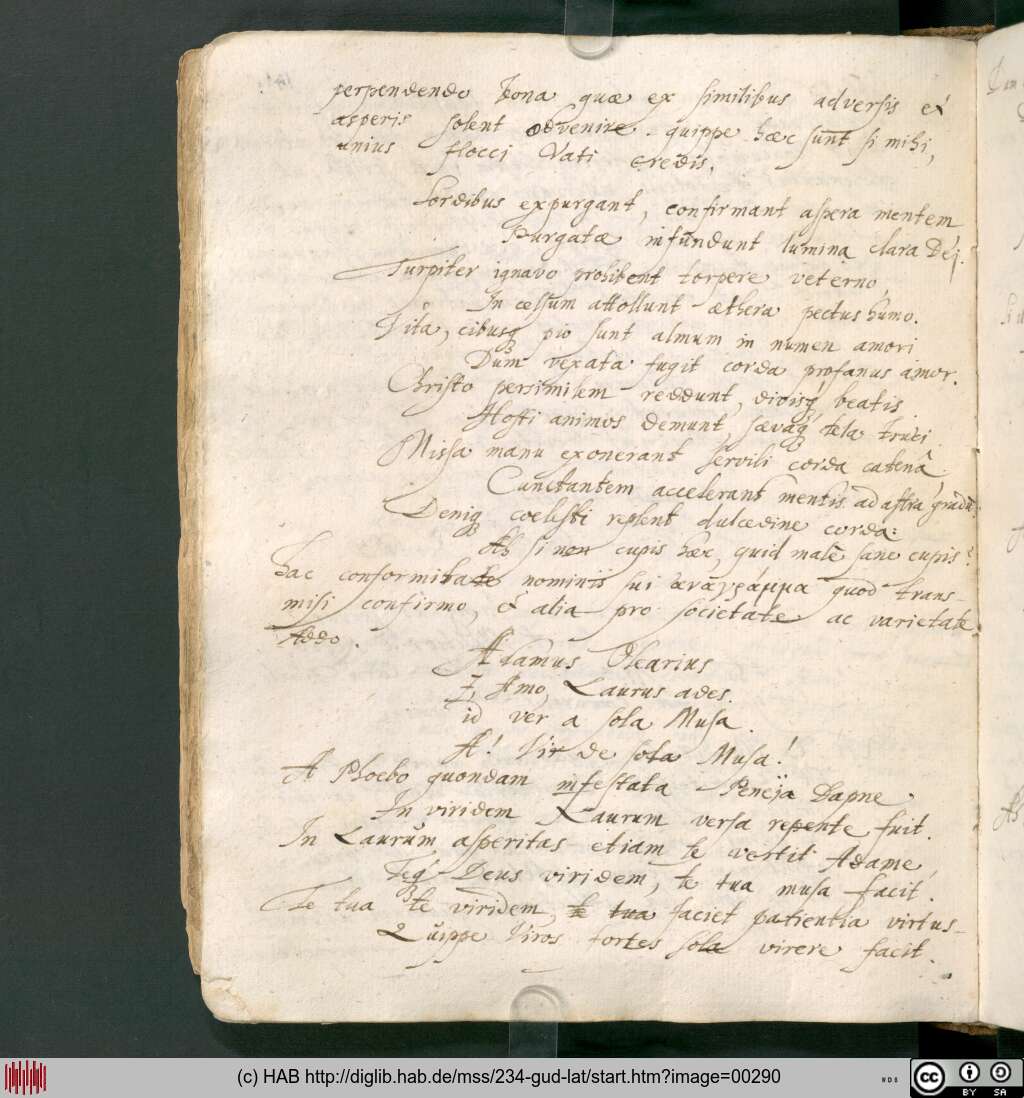 perpendendo bona quæ ex similibus adversis et
asperis solent advenire. quippe hæc sunt si mihi,
unius flocci Vati credis.
Sordibus expurgant, confirmant aspera mentem
Purgatæ infundunt lumina clara Dej.
Turpiter ignavo prohibent torpere veterno,
In celsum attollunt æthera pectus humo.
Vita, cibusq pio sunt almum in numen amori
Dum vexata fugit corda profanus amor.
Christo persimilem reddunt, divisq beatis
Hosti animos demunt, sævaq tela truci
Missa manu exonerant servili corda catenâ
Cunctantem accelerant mentis ad astra gradū.
Deniq coelesti replent dulcedine corda:
Ah si non cupis hæc, quid malè sane cupis?
hac conformitate nominis sui ἀνάγράμμα quod trans-
misi confirmo, et alia pro societate ac varietate
Addo.
Adamus Olearius
I, Amo, Laurus ades.
id ver a sola Musa.
A! Vir de sola Musa!
A Phoebo quondam infestata Peneja Dapne
In viridem Laurum versa repente fuit.
In Laurum asperitas etiam te vertit Adame,
Teq Deus viridem, te tua musa facit.
Te tua te viridem, te tua faciet patientia virtus-
Quippe Viros fortes sola virere facit.
(c) HAB http://diglib.hab.de/mss/234-gud-lat/start.htm?image=00290
cc BY SA